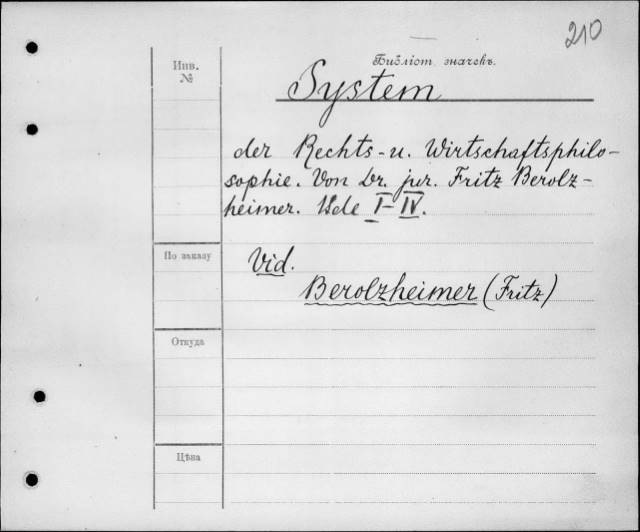 210
Инв.
№
Библіот. значекъ.
System
der Rechts- u. Wirtschaftsphilo-
sophie. Von Dr. jur. Fritz Berolz-
heimer. Bde I-IV.
По заказу
Vid.
Berolzheimer (Fritz)
Откуда
Цѣна